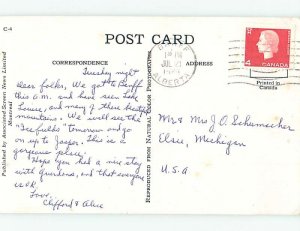 C-4
POST CARD
CORRESPONDENCE
ADDRESS
Tuesday night
Dear folks, We got to Banff
this a.m. and have seen Lake
Louise, and many of these beautiful
mountains. We will see the
"Icefields" tomorrow and go
on up to Jasper. This is a
gorgeous place.
Hope you had a nice stay
with grandma, and that everyone
is O.K.
Love,
Clifford & Alice
Published by Associated Screen News Limited
Montreal
REPRODUCED FROM NATURAL COLOR PHOTOGRAPH
PM
JUL 21
ALBERTA
4
CANADA
Printed in
Canada
Mr & Mrs J. O. Schumacker
Elsie, Michigan
U.S.A